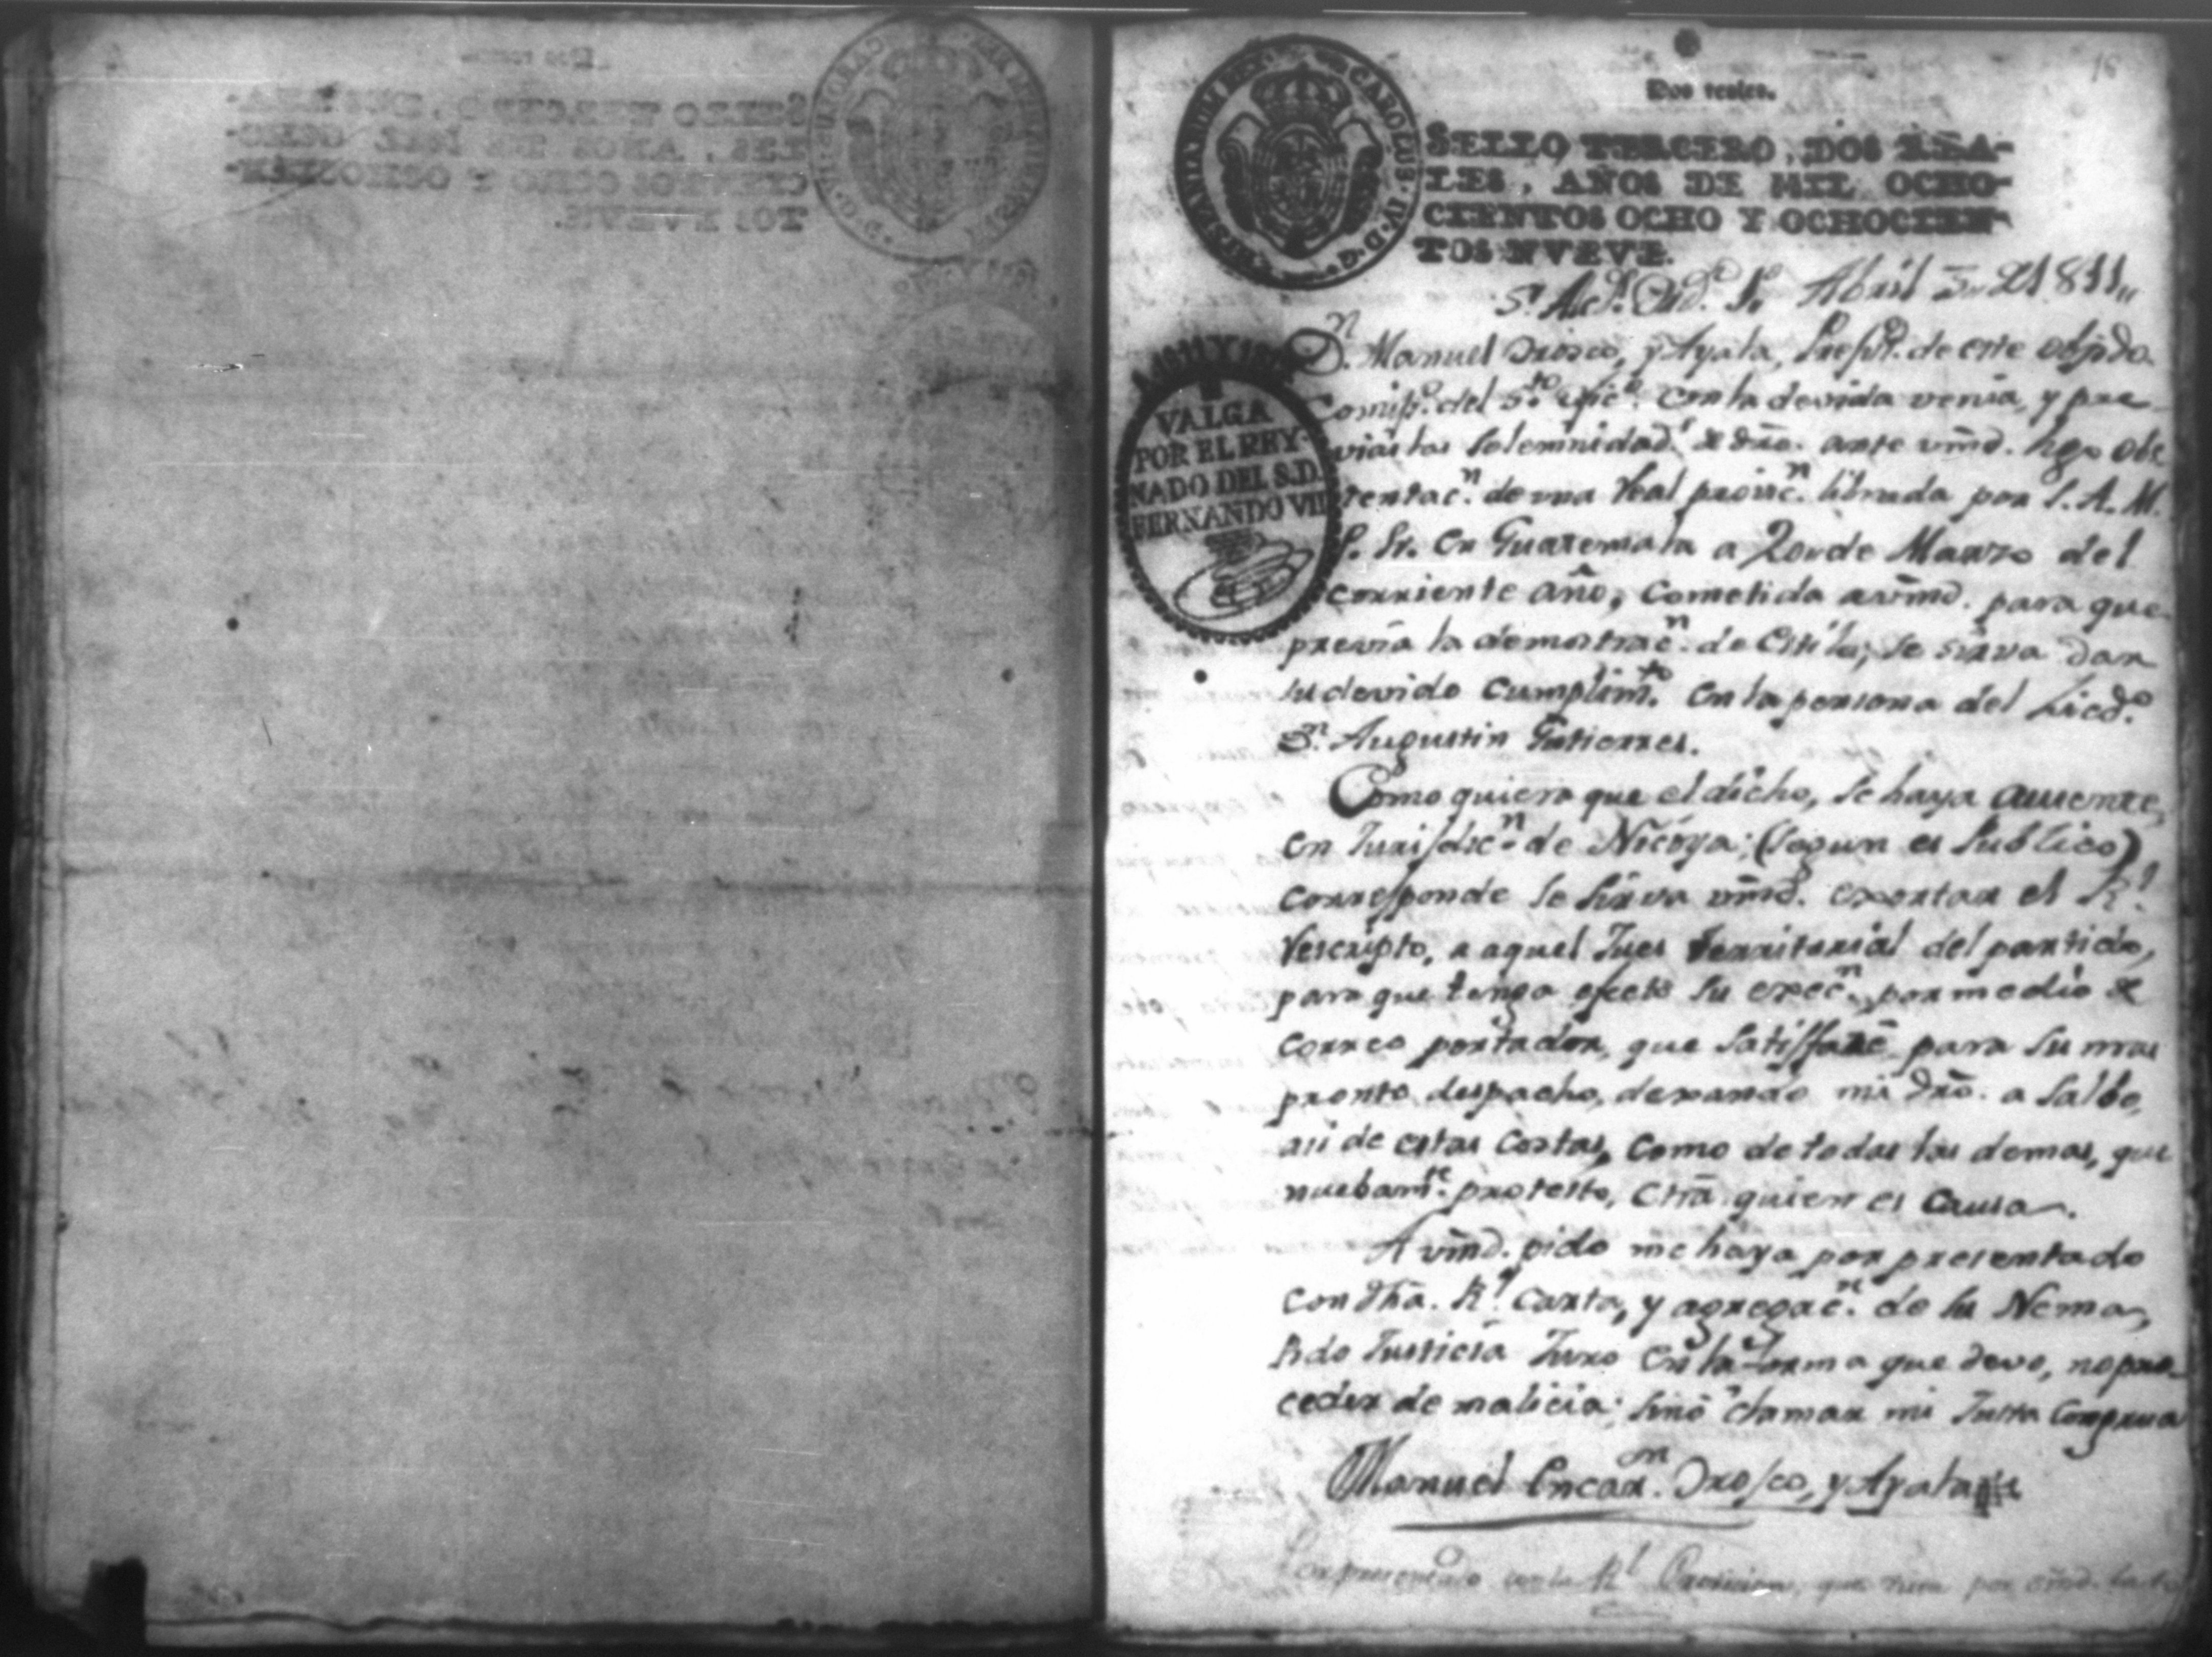 18
Dos reales.
SELLO TERCERO, DOS REA-
LES, AÑOS DE MIL OCHO-
CIENTOS OCHO Y OCHOCIEN-
TOS NVEVE.
CAROLUS·IV·D·G· HISPANIARUM REX
Abril 3 1811
VALGA
POR EL REY-
NADO DEL S.D.
FERNANDO VII
Dn. Manuel Orosco, y Ayala, Presbo. de este obpdo.
Comiso. del Sto. ofico. con la devida venia, y pre-
vias las solemnidads. de dro. ante vmd. hgo obs
tentacn. de una Real provicn. librada por S. A. M.
P. Sr. en Guatemala a 20 de Marzo del
corriente año, cometida a vmd. para que
previa la demostracn. de estilo, se sirva dar
su devido cumplimto. en la persona del Licdo.
Dn. Augustin Gutierres.
Como quiera que el dicho, se haya ausente,
en Jurisdicn. de Nicoya; (segun es publico)
corresponde se sirva vmd. exortar el Rl.
rescripto, a aquel Jues territorial del partido,
para que tenga efecto su execn. por medio de
correo portador, que satisfaré para su mas
pronto despacho, dexando mi dro. a salbo,
asi de estas costas, como de todas las demas, que
nuebamte. protesto, ctra. quien es causa.
A vmd. pido me haya por presentado
con dha. Rl. carta, y agregacn. de su Nema,
pido Justicia Juro en la forma que devo, no pro-
ceder de malicia; sino clamar mi Justa Congrua
Manuel Encarn. Orosco, y Ayala
Por presentado con la Rl. Provision, que